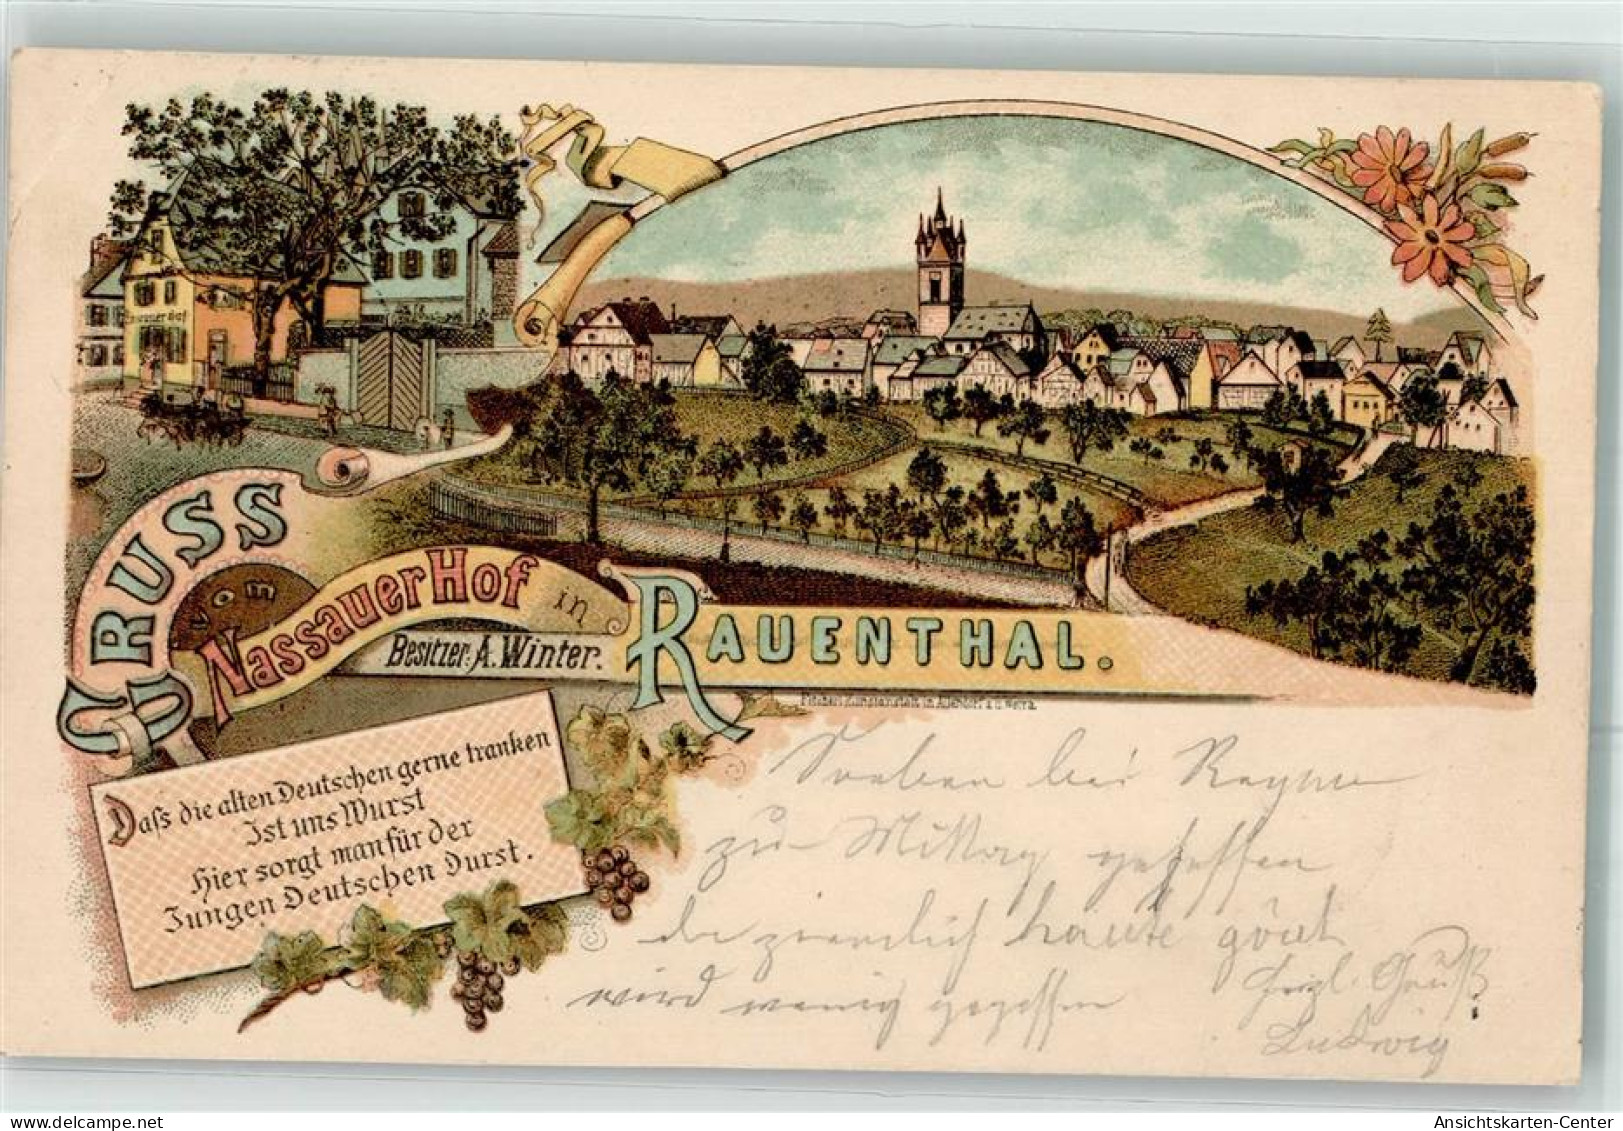 Nassauer Hof
GRUSS
vom
Nassauer Hof in
Besitzer: A. Winter.
RAUENTHAL.
Daß die alten Deutschen gerne tranken
Ist uns Wurst
Hier sorgt man für der
Jungen Deutschen Durst.
Soeben bei
zu Mittag gegessen
ziemlich heute
wird wenig gegessen
Herzl. Gruß
Ludwig
AnsichtsKarten-Center